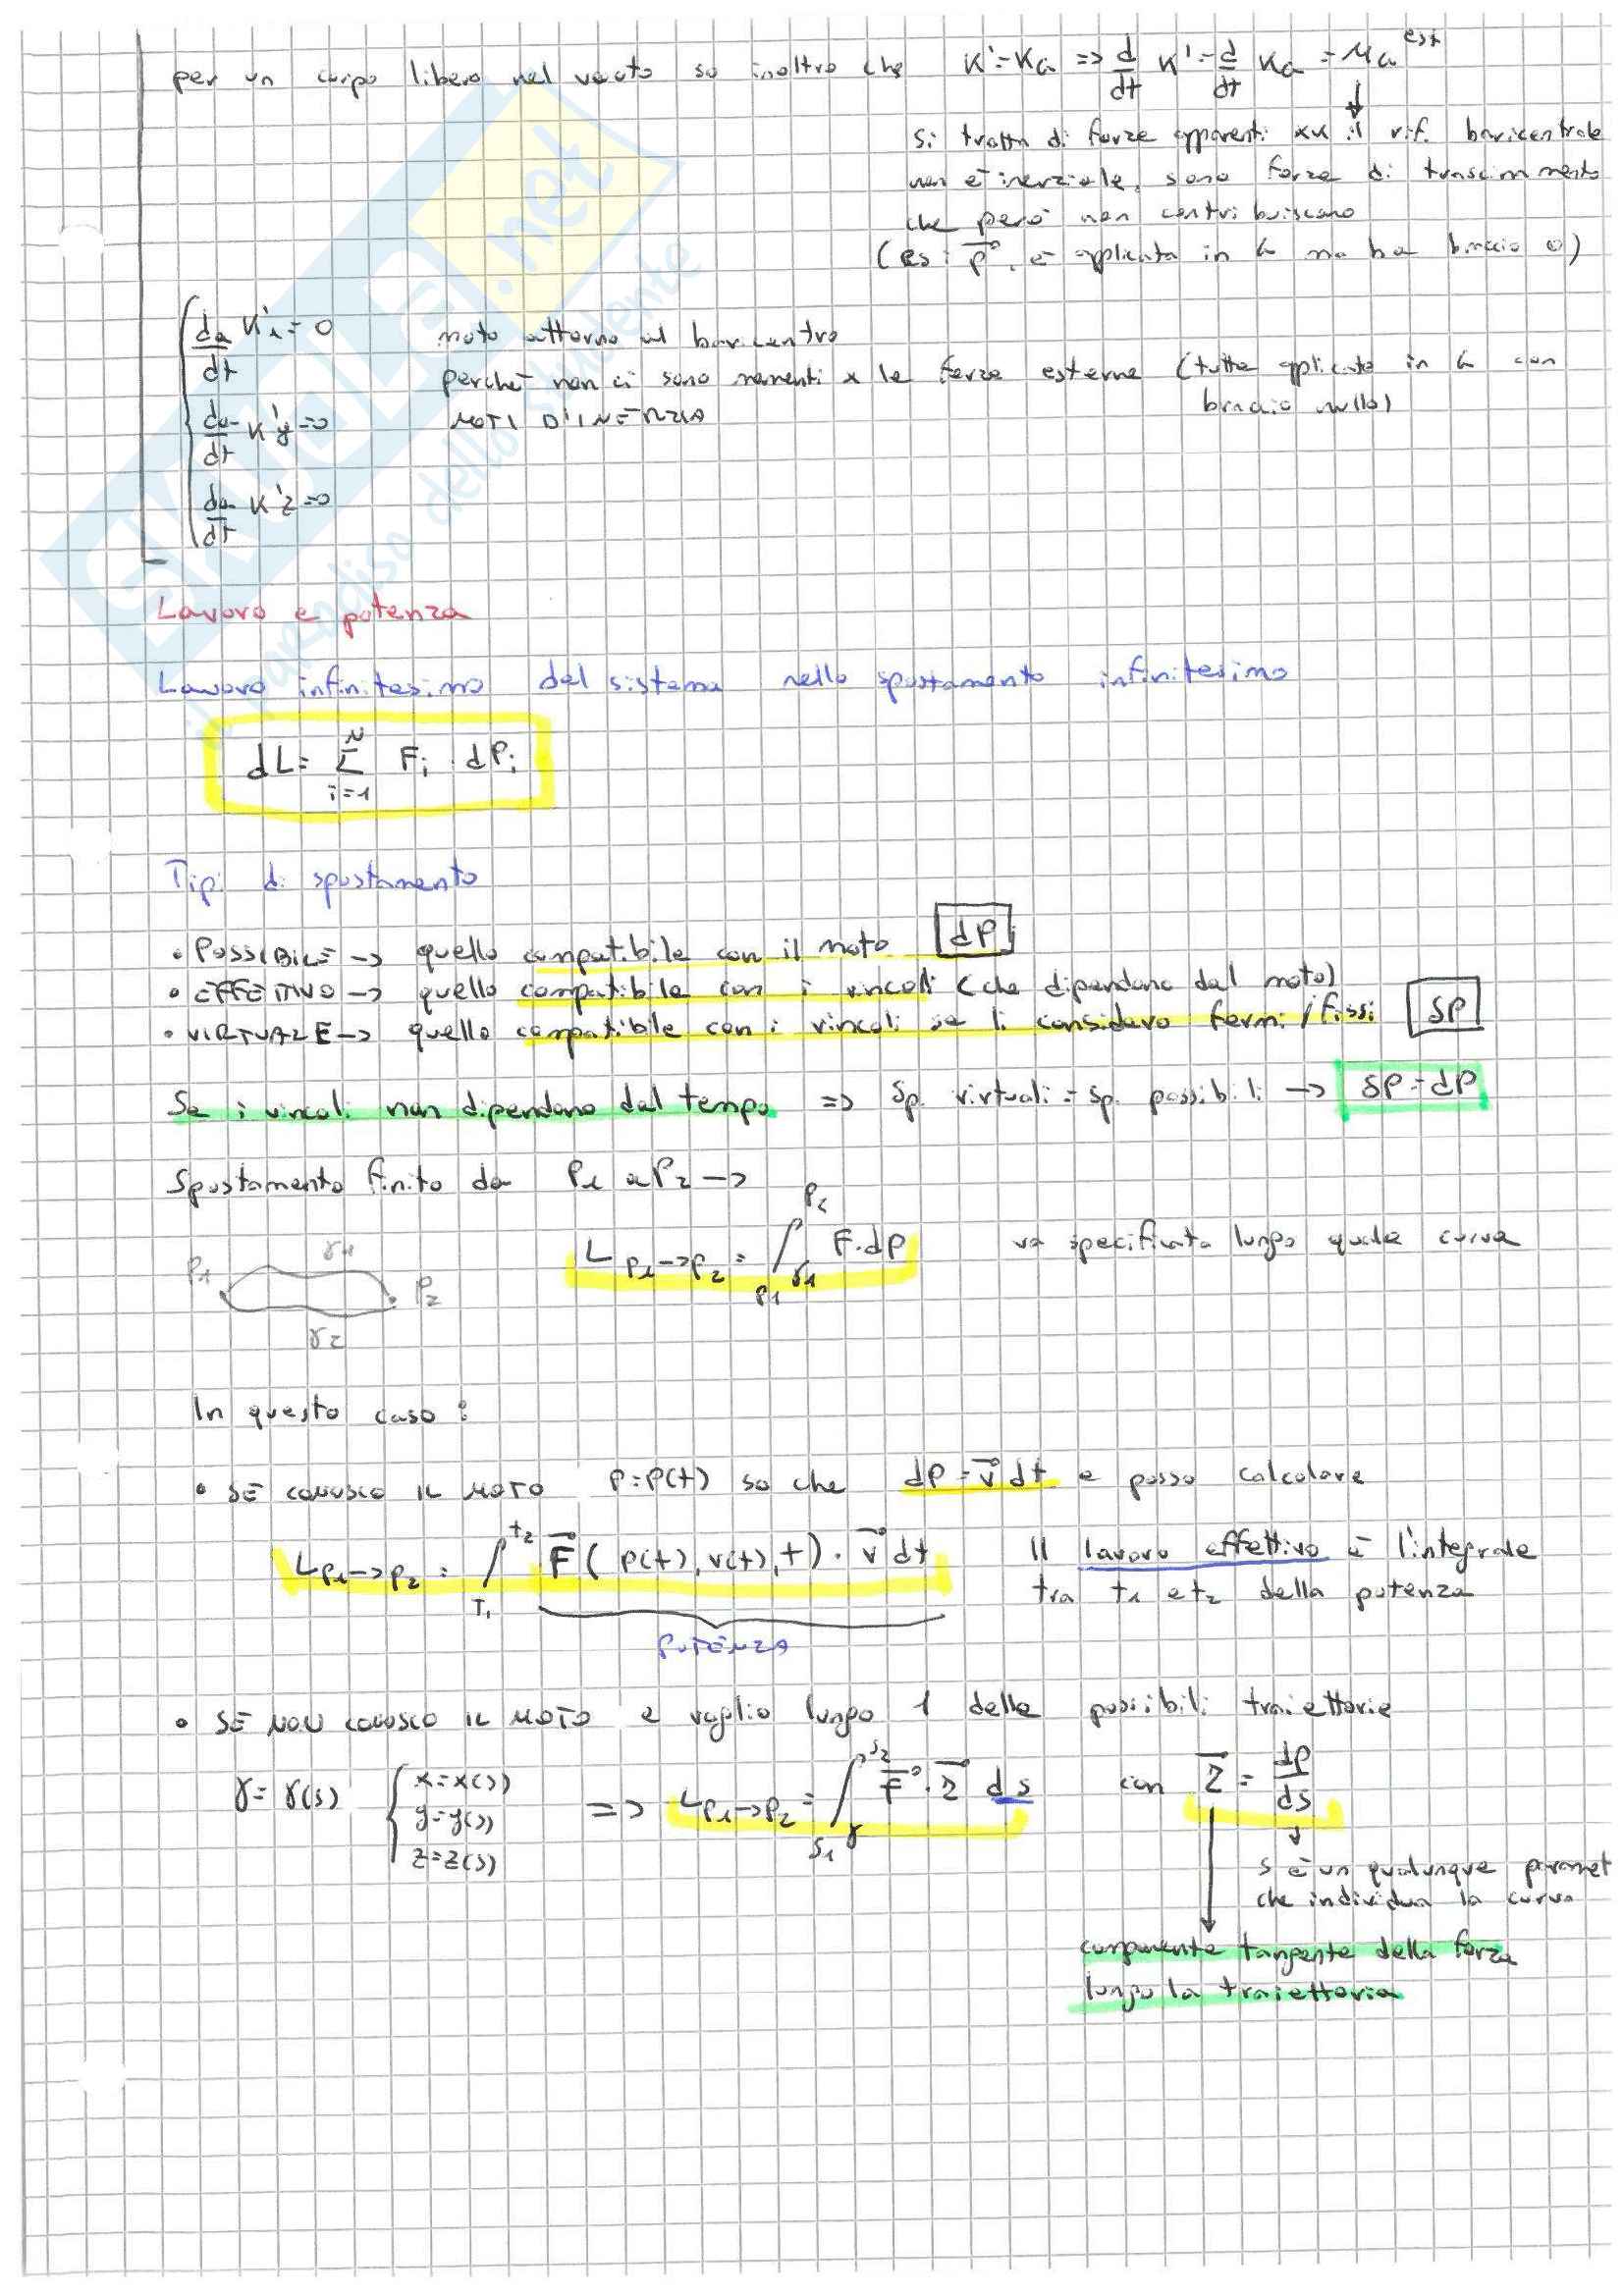 per un corpo libero nel vuoto so inoltre che K' = K_G => d/dt K' = d/dt K_G = M_G^est
↓
si tratta di forze apparenti xk il rif. baricentrale
non è inerziale, sono forze di trascinamento
che però non contribuiscono
(es: p, è applicata in G ma ha braccio 0)
d_a/dt K'_x = 0 moto attorno al baricentro
perché non ci sono momenti x le forze esterne (tutte applicate in G con
braccio nullo)
d_a/dt K'y = 0 MOTI D'INERZIA
d_a/dt K'z = 0
Lavoro e potenza
Lavoro infinitesimo del sistema nello spostamento infinitesimo
dL = Σ_{i=1}^{N} F_i · dP_i
Tipi di spostamento
• POSSIBILE -> quello compatibile con il moto dP
• EFFETTIVO -> quello compatibile con i vincoli (che dipendono dal moto)
• VIRTUALE -> quello compatibile con i vincoli se li considero fermi/fissi δP
Se i vincoli non dipendono dal tempo => sp. virtuali = sp. possibili -> δP = dP
Spostamento finito da P1 a P2 ->
P1 γ1 P2 γ2
L_{P1->P2} = ∫_{P1 γ1}^{P2} F·dP va specificata lungo quale curva
In questo caso:
• SE CONOSCO IL MOTO P = P(t) so che dP = v dt e posso calcolare
L_{P1->P2} = ∫_{T1}^{t2} F(P(t), v(t), t) · v dt Il lavoro effettivo è l'integrale
tra t1 e t2 della potenza
POTENZA
• SE NON CONOSCO IL MOTO e voglio lungo 1 delle possibili traiettorie
γ = γ(s) { x = x(s) y = y(s) z = z(s) => L_{P1->P2} = ∫_{s1 γ}^{s2} F · τ ds con τ = dP/ds
s è un qualunque paramet
che individua la curva
componente tangente della forza
lungo la traiettoria
il paradiso dello studente
.net